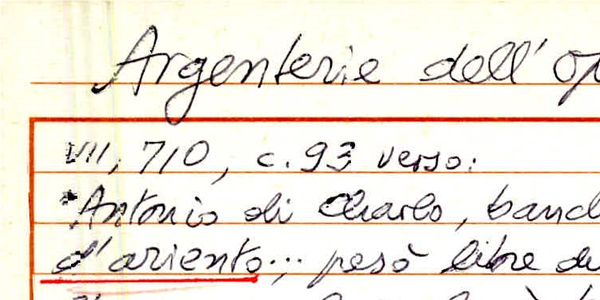 Argenterie dell'Op
VII, 710, c. 93 verso:
"Antonio di Charlo, band
d'ariento... pesò libre du